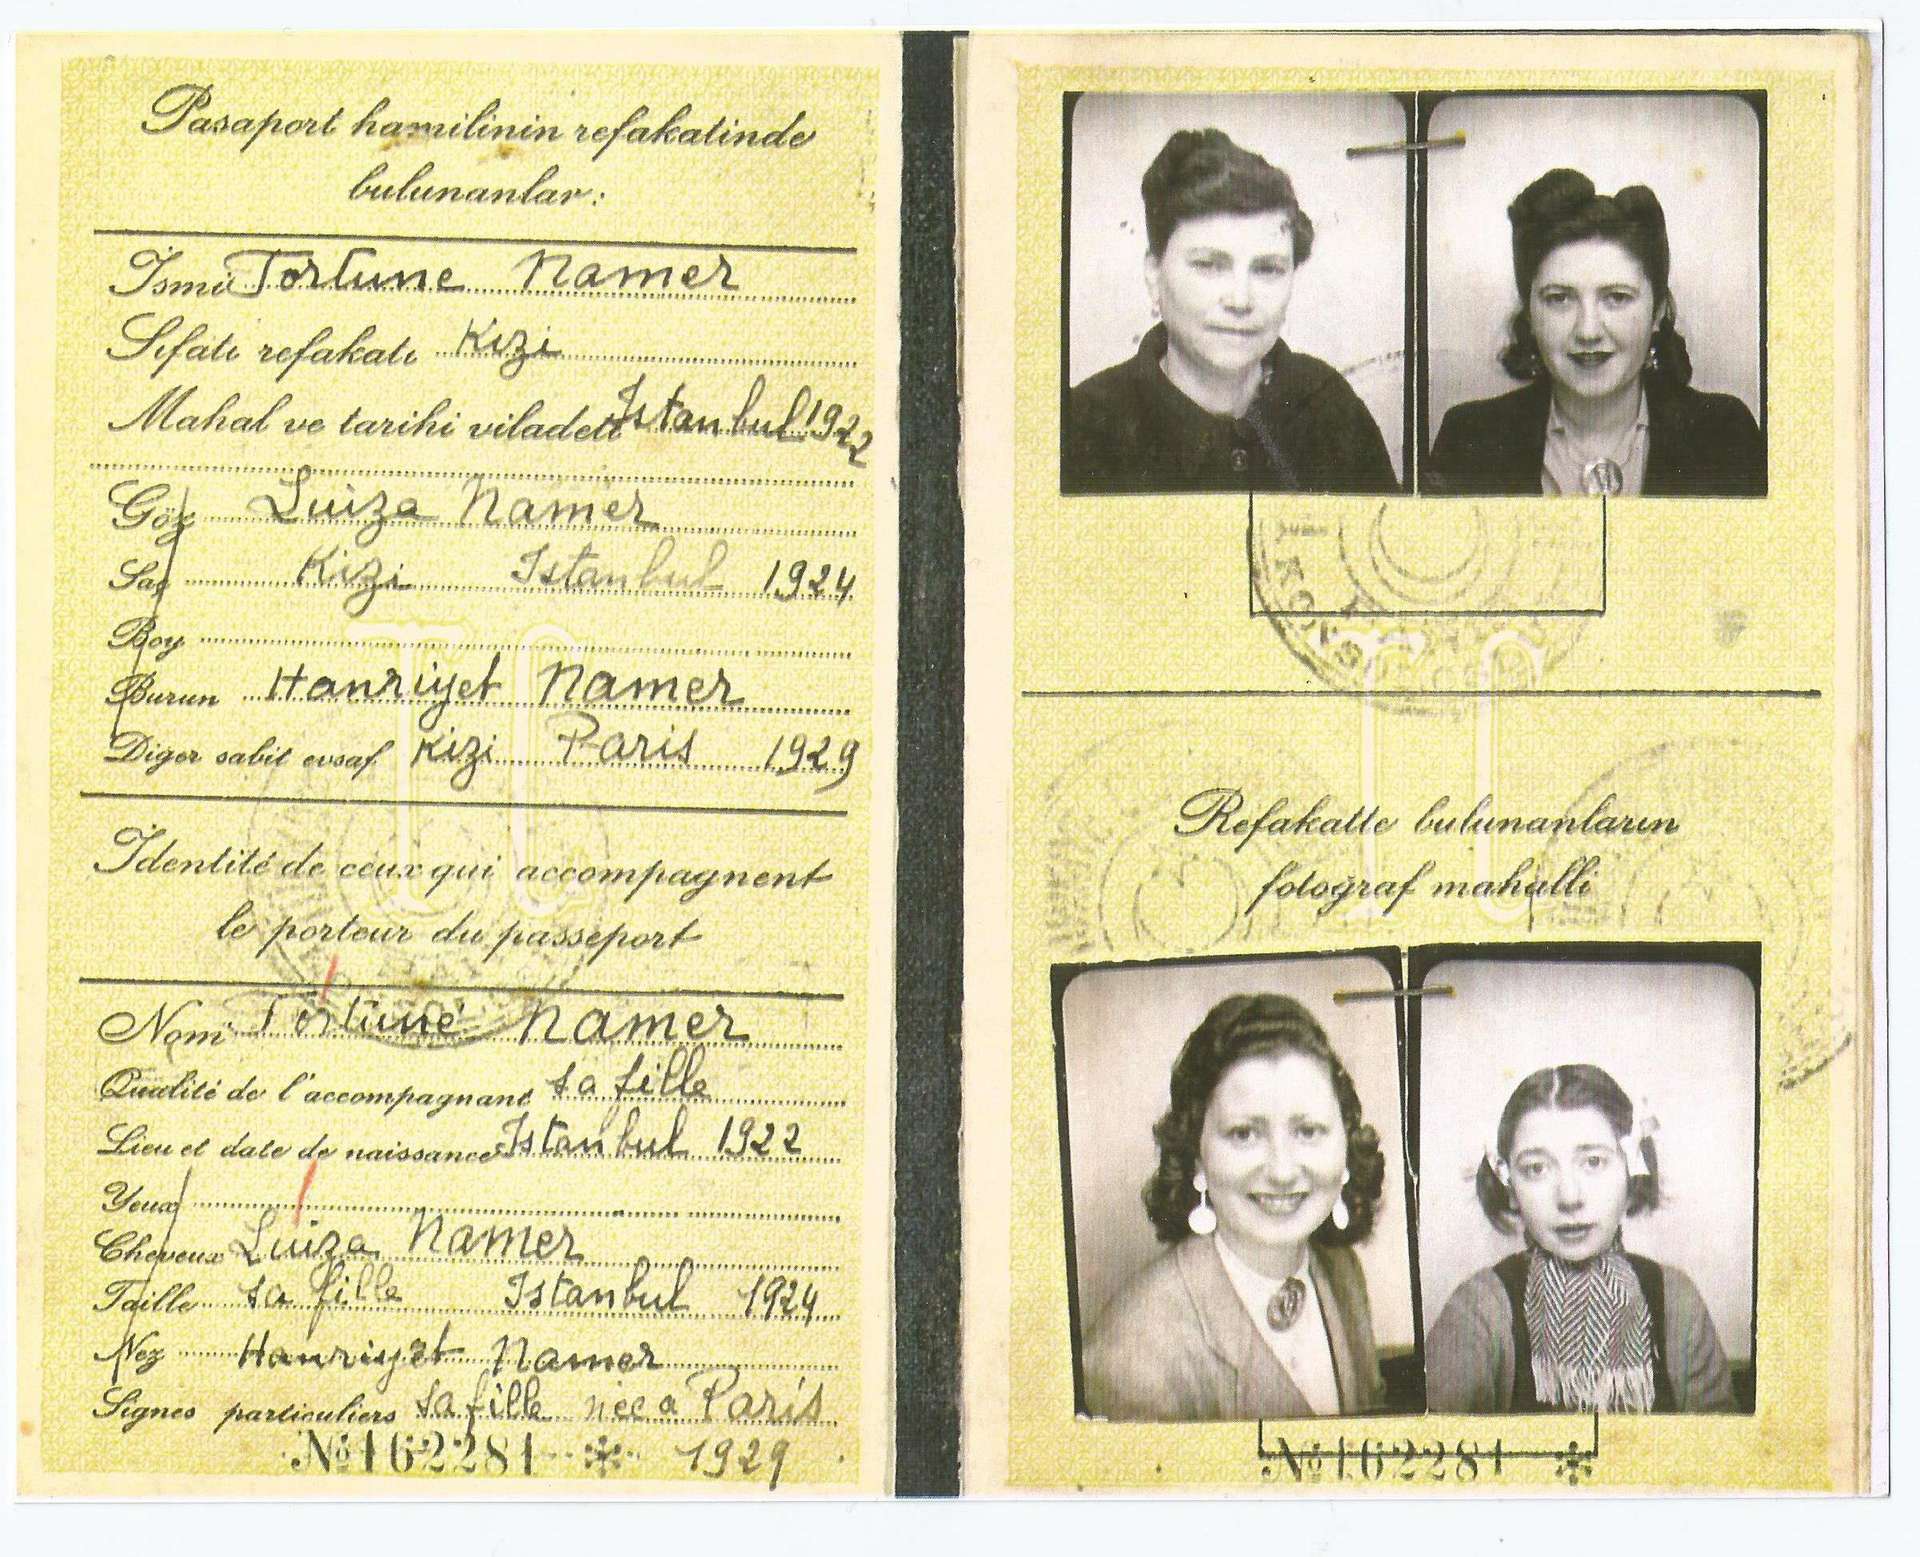 Pasaport hamilinin refakatinde
bulunanlar:
İsmi Fortune Namer
Sıfatı refakatı Kizi
Mahal ve tarihi viladeti Istanbul 1922
Göz Luiza Namer
Saç Kizi Istanbul 1924
Boy
Burun Hanriyet Namer
Diger sabit evsaf Kizi Paris 1929
Identité de ceux qui accompagnent
le porteur du passeport
Nom Fortuné Namer
Qualité de l'accompagnant sa fille
Lieu et date de naissance Istanbul 1922
Yeux
Cheveux Luiza Namer
Taille sa fille Istanbul 1924
Nez Hanriyet Namer
Signes particuliers sa fille née a Paris
№ 162281 * 1929
KONS
Refakatte bulunanların
fotoğraf mahalli
№ 162281 *